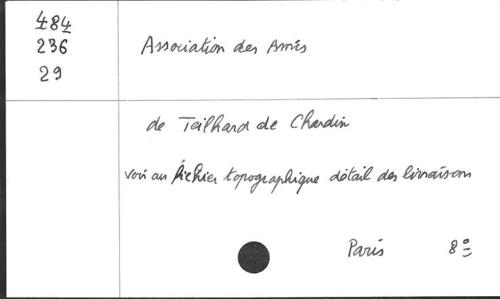 484
236
29
Association des Amis
de Teilhard de Chardin
voir au fichier topographique détail des livraisons
Paris 8º